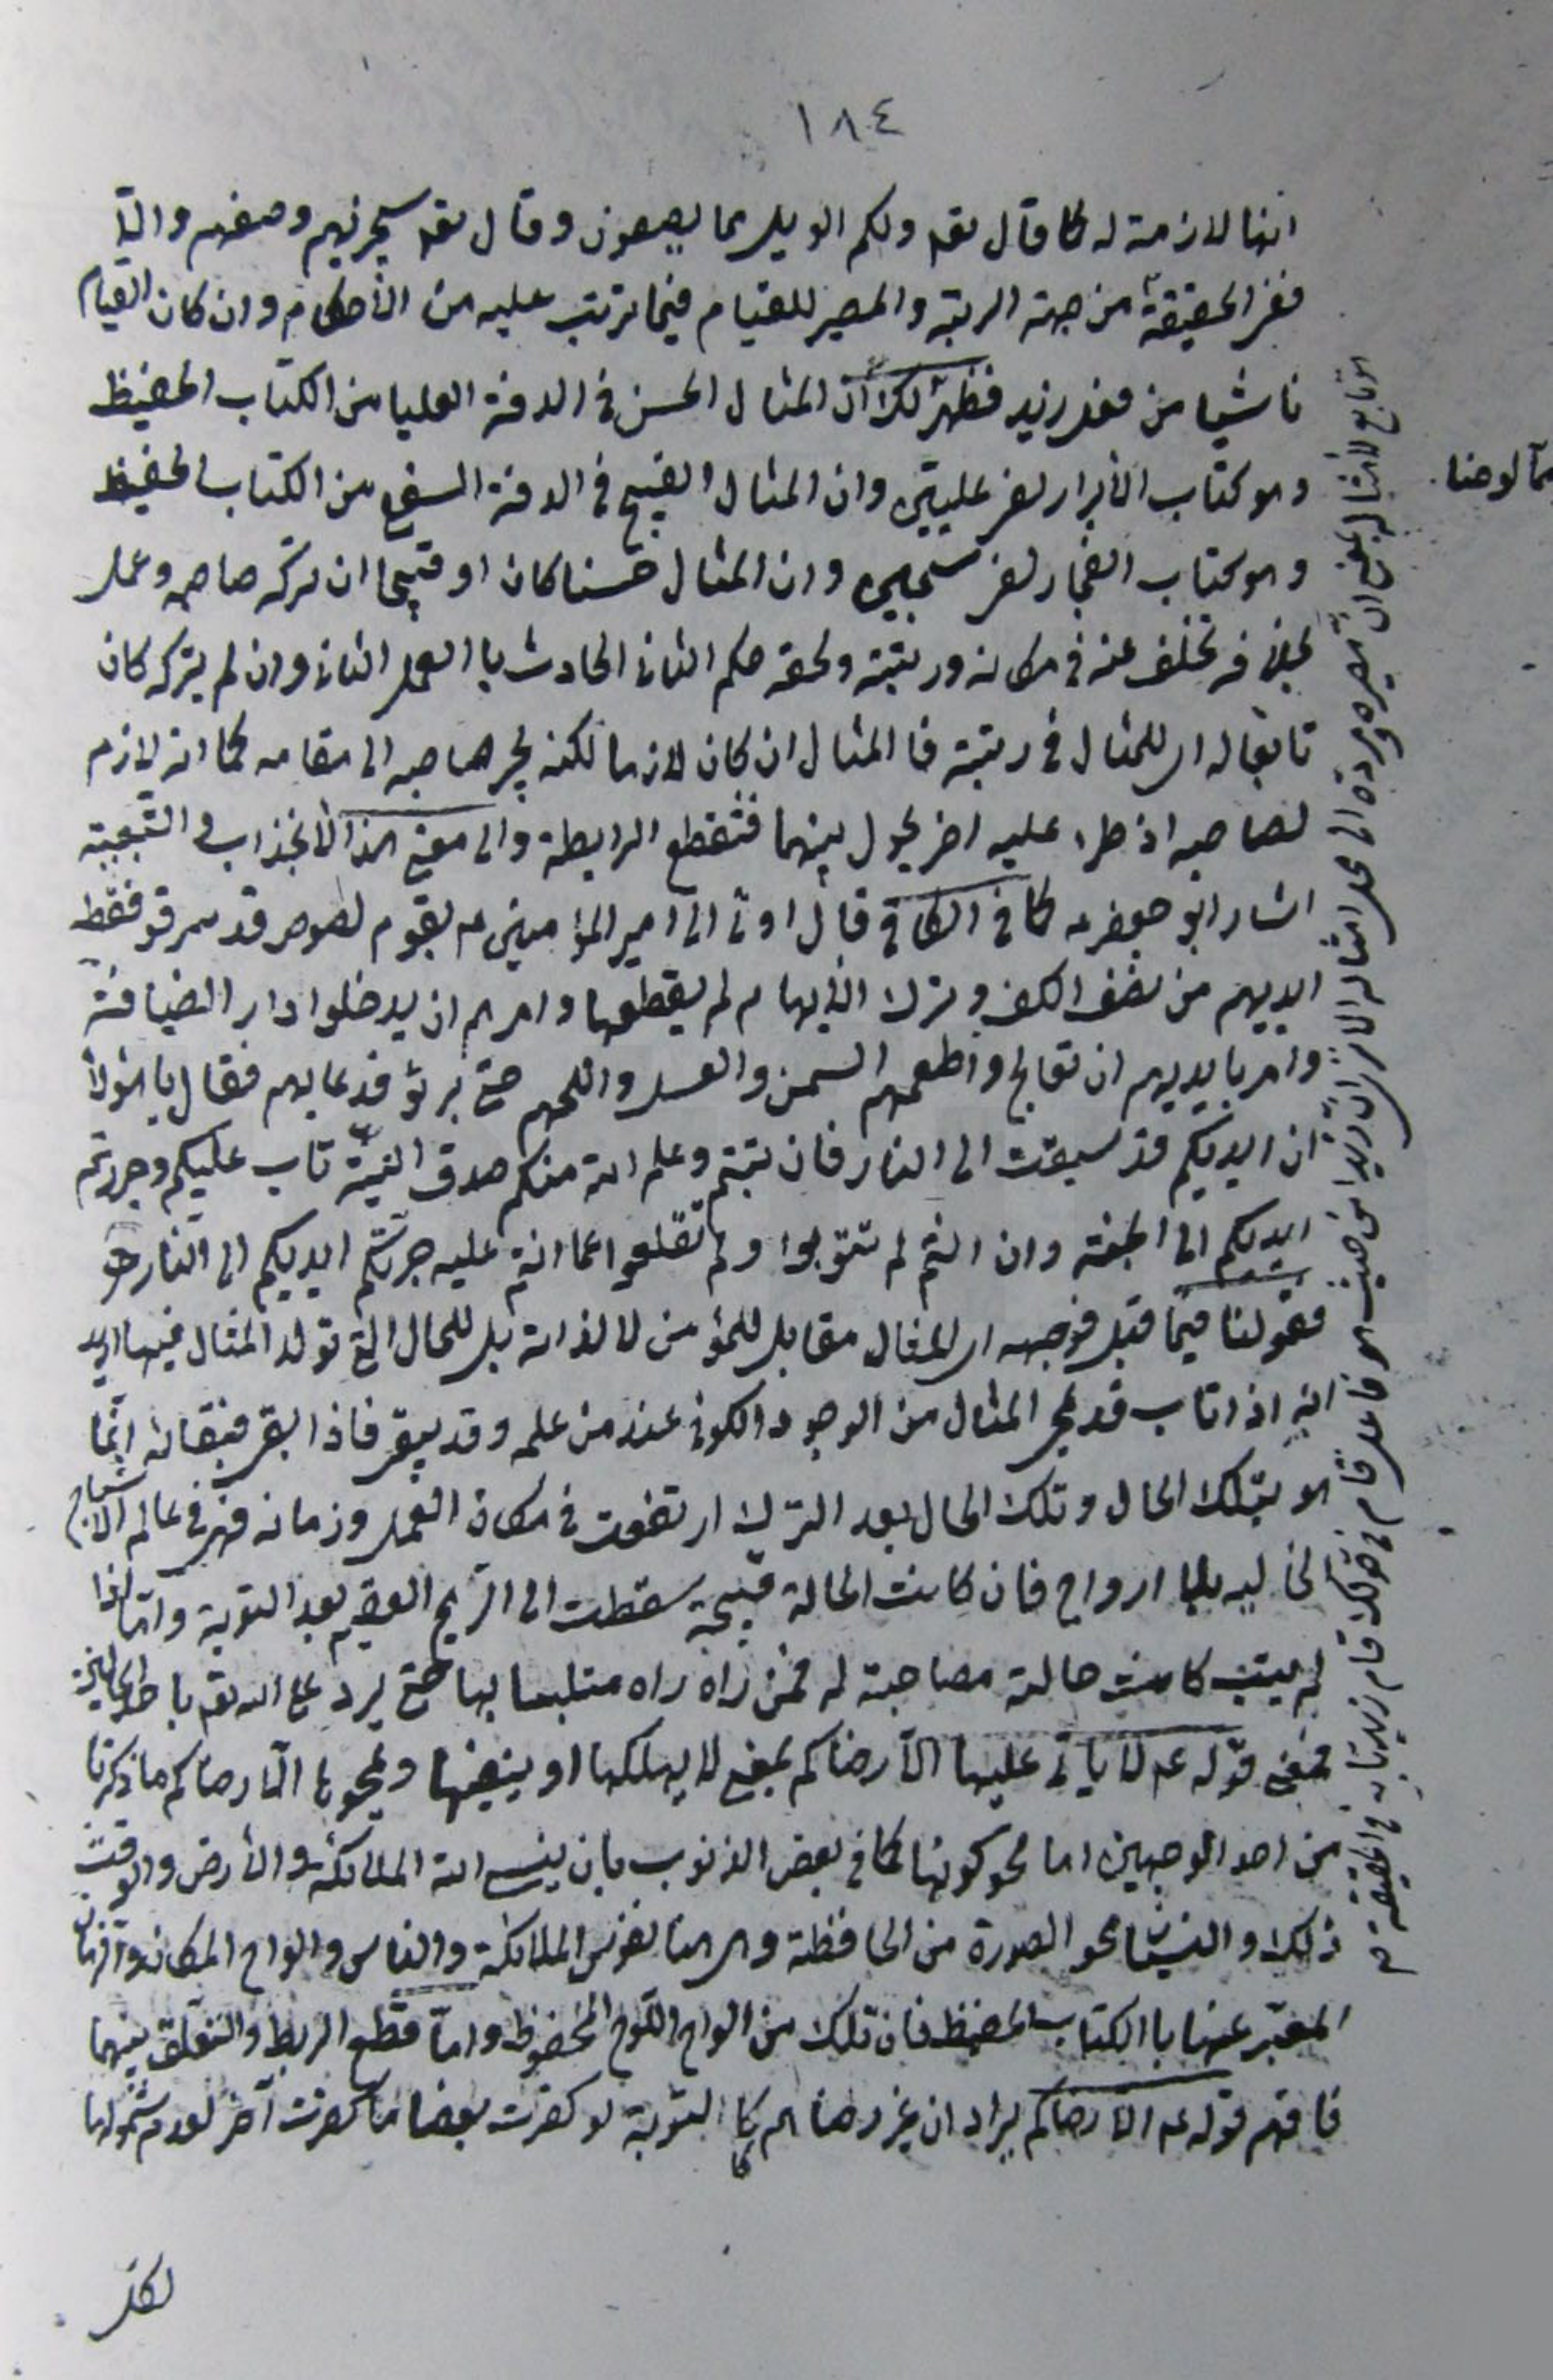 ١٨٤
انها لازمة له كما قال تعه ولكم الويل مما يصفون وقال تعه سيجزيهم وصفهم والثا
ففى الحقيقة من جهة الرتبة والمصير للقيام فيما ترتب عليه من الأحكام وان كان القيام
ناشيا من فعل زيد فظهر لك ان المثال الحسن فى الدفة العليا من الكتاب الحفيظ
وهو كتاب الأبرار لفى عليين وان المثال القبيح فى الدفة السفلى من الكتاب الحفيظ
وهو كتاب الفجار لفى سجين وان المثال حسنا كان او قبيحا ان تركه صاحبه وعمل
بخلافه تخلف عنه فى مكانه ورتبته ولحقه حكم الثانى الحادث با العمل الثانى وان لم يتركه كان
تابعا له اى للمثال فى رتبته فا المثال ان كان لازما لكنه يجر صاحبه الى مقامه كما انه لازم
لصاحبه اذ طرء عليه اخر يحول بينهما فتقطع الرابطة والى معنى هذا الأنجذاب و التبعية
اشار ابو جعفر عه كما فى الكافى قال اوتى الى امير المؤمنين عه بقوم لصوص قد سرقو فقطع
ايديهم من نصف الكف وترك الأبهام لم يقطعها وامرهم ان يدخلوا دار الضيافة
وامر بايديهم ان تعالج واطعمهم السمن والعسل واللحم حتى برئو فدعا بهم فقال يا هؤلاء
ان ايديكم قد سبقت الى النار فان تبتم وعلم الله منكم صدق النية تاب عليكم وجررتم
ايديكم الى الجنة وان انتم لم تتوبوا ولم تقلعوا عما انتم عليه جرتكم ايديكم الى النار
فقولنا فيما قبل فوجهه اى المثال مقابل للمؤمن لا لذاته بل للحال التى تولد المثال فيها
انه اذا تاب قد محى المثال من الوجود الكونى عند من علمه وقد يبقى فاذا ابقى فبقائه انما
هو بتلك الحال وتلك الحال بعد الترك ارتفعت فى مكان الفعل وزمانه فهى فى عالم الأشباح
الخاليه بلا ارواح فان كانت الحالة قبيحة سقطت الى الريح العقيم بعد التوبة واما اذا
لم يتب كانت حالته مصاحبة له فمن راه راه متلبسا بها حتى يرد على الله تعه با
فمعنى قوله عه لا ياتى عليها الا رضاكم بمعنى لا يهلكها او ينفيها ويمحوها الا رضاكم ما ذكرنا
من احد الوجهين اما محو كونها كما فى بعض الذنوب بان ينسى الله الملائكة والأرض والوقت
ذلك والنسيان محو الصورة من الحافظة وهى هنا نفوس الملائكة والناس والواح المكان والزمان
المعبر عنها با الكتاب الحفيظ فان تلك من الواح اللوح المحفوظ واما قطع الربط والتعلق بينهما
فافهم قوله عه الا رضاكم يراد ان غير رضاهم كا التوبة لو كفرت بعضا ما كفرت آخر لعدم شمولها
لكل